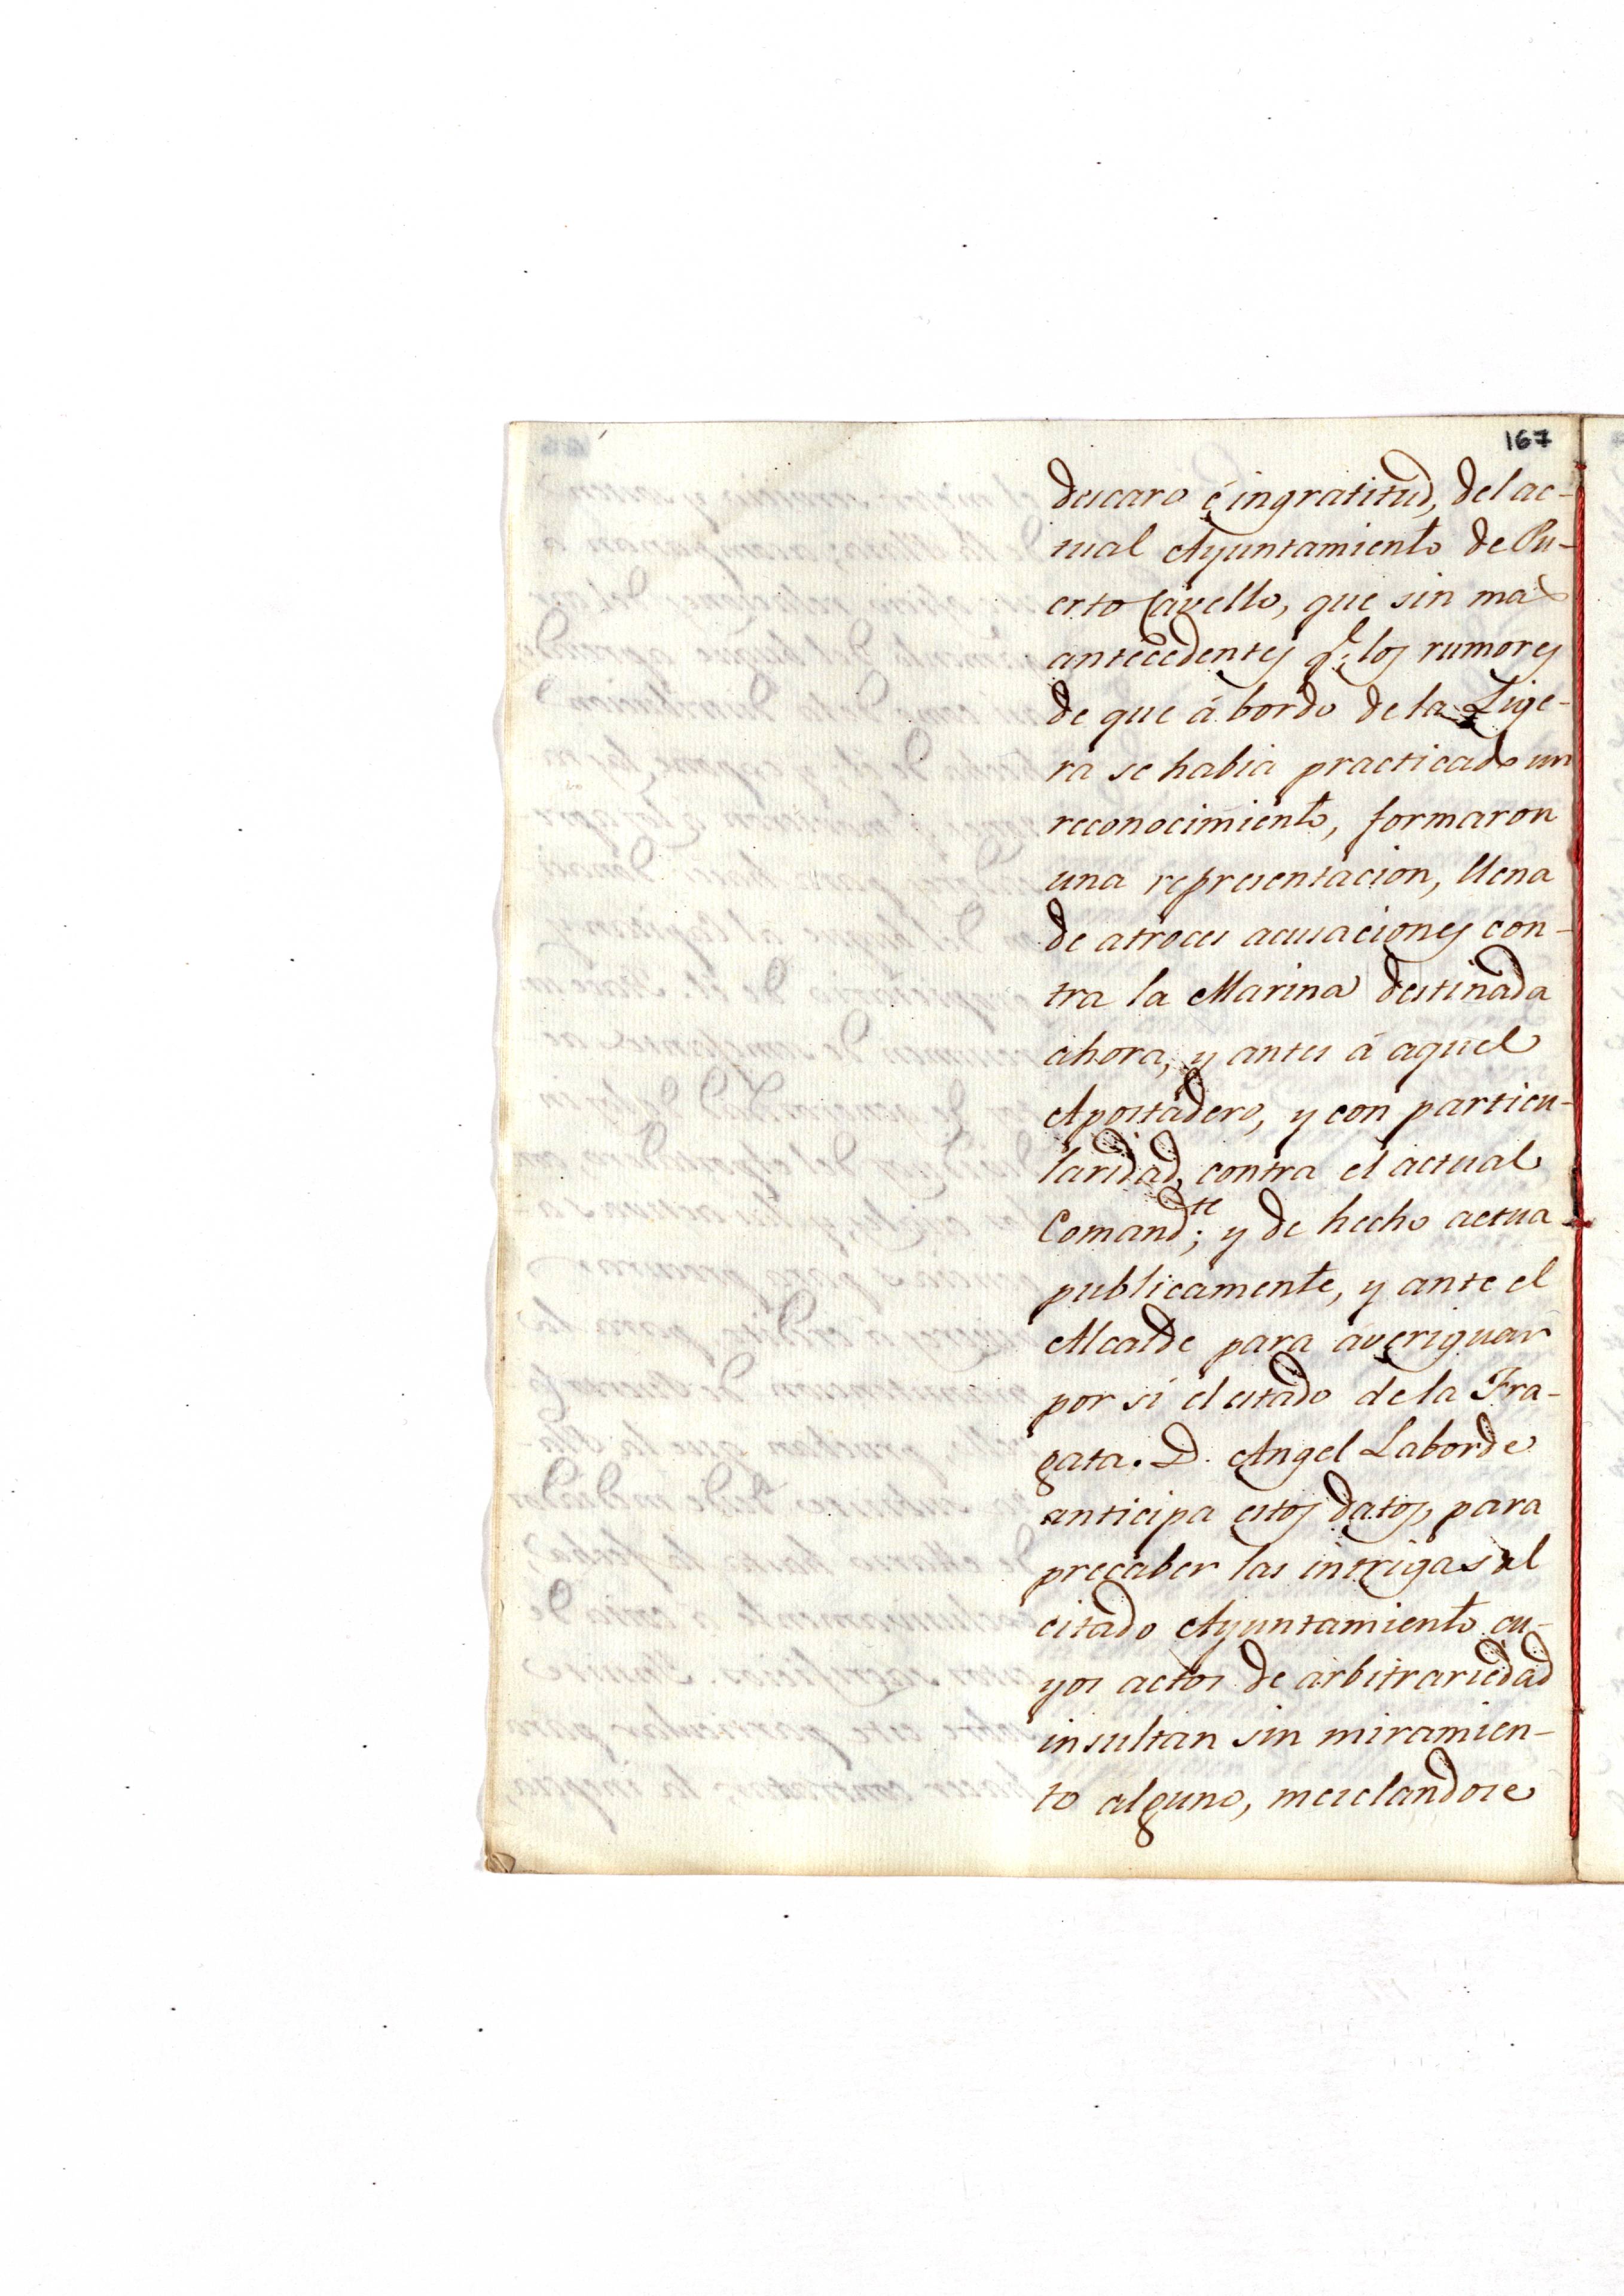 167
descaro é ingratitud, del ac-
tual Ayuntamiento de Pu-
erto Cavello, que sin mas
antecedentes q.e los rumores
de que á bordo de la Lige-
ra se habia practicado un
reconocimiento, formaron
una representacion, llena
de atroces acusaciones con-
tra la Marina destinada
ahora, y antes á aquel
Apostadero, y con particu-
laridad, contra el actual
Comand.te; y de hecho actua
publicamente, y ante el
Alcalde para averiguar
por si el estado de la Fra-
gata. D. Angel Laborde
anticipa estos datos, para
precaber las intrigas del
citado Ayuntamiento cu-
yos actos de arbitrariedad
insultan sin miramien-
to alguno, mesclandose